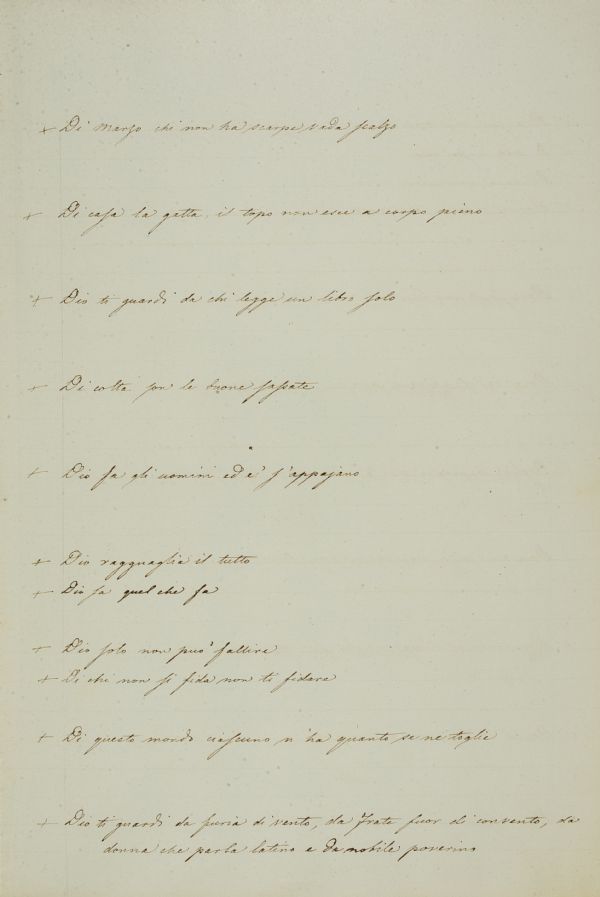 + Di Marzo chi non ha scarpe vada scalzo
+ Di casa la gatta, il topo non esce a corpo pieno
+ Dio ti guardi da chi legge un libro solo
+ Di colta son le buone sassate
+ Dio fa gli uomini ed e' s'appajano
+ Dio ragguaglia il tutto
+ Dio sa quel che fa
+ Dio solo non puo' fallire
+ Di chi non si fida non ti fidare
+ Di questo mondo ciascuno n'ha quanto se ne toglie
+ Dio ti guardi da furia di vento, da frate fuor di convento, da
donna che parla latino e da nobile poverino